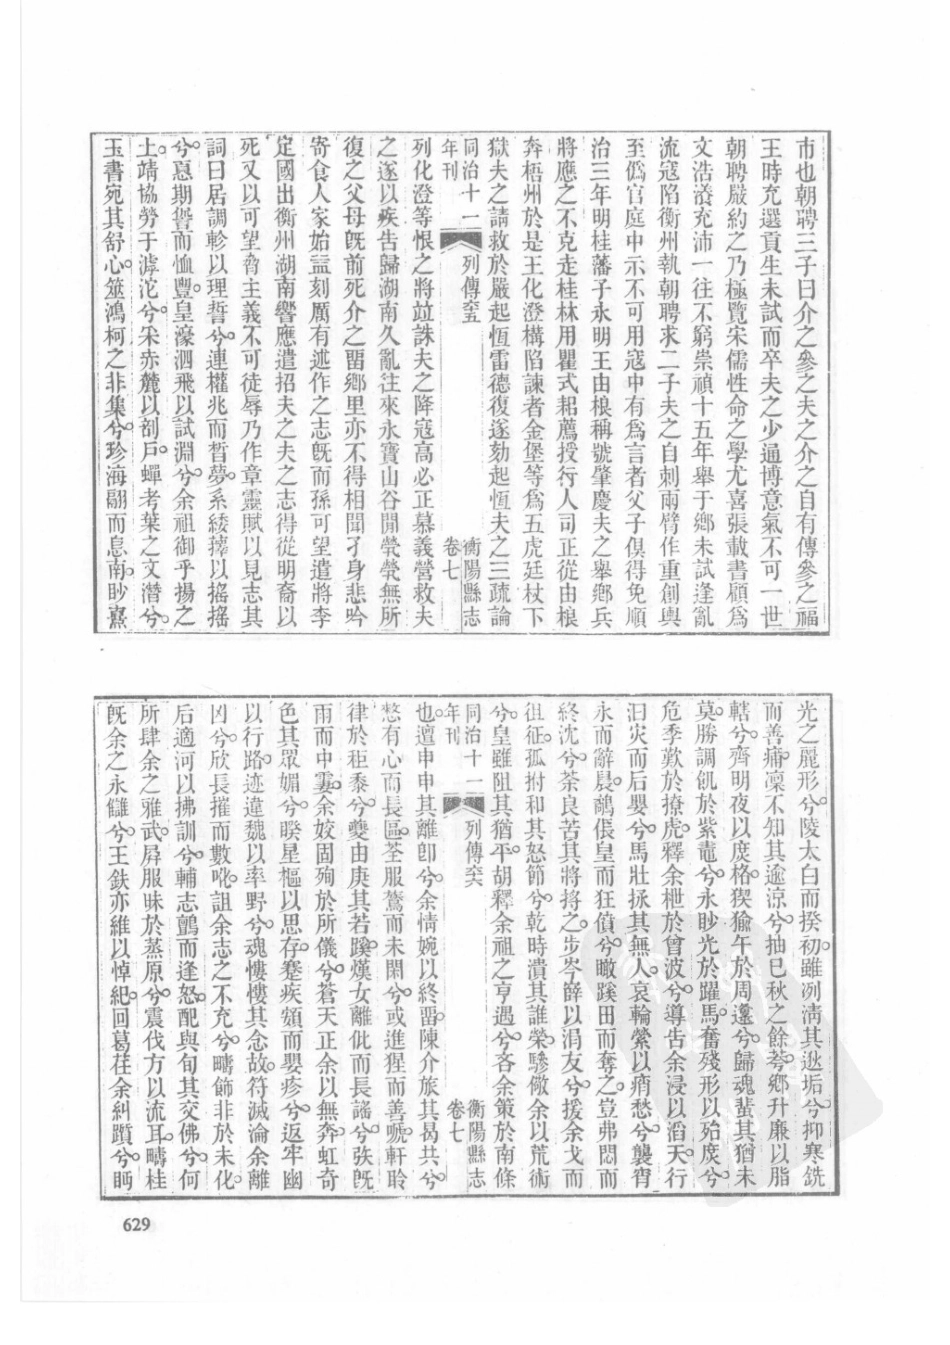 市也朝聘三子曰介之參之夫之介之自有傳參之福
王時充選貢生未試而卒夫之少通博意氣不可一世
朝聘嚴約之乃極覽宋儒性命之學尤喜張載書顧爲
文浩瀁充沛一往不窮崇禎十五年舉于鄉未試逢亂
流寇陷衡州執朝聘求二子夫之自刺兩臂作重創輿
至僞官庭中示不可用寇中有爲言者父子俱得免順
治三年明桂藩子永明王由榔稱號肇慶夫之舉鄉兵
將應之不克走桂林用瞿式耜薦授行人司正從由榔
奔梧州於是王化澄構陷諫者金堡等爲五虎廷杖下
獄夫之請救於嚴起恆雷德復遂劾起恆夫之三疏論
同治十一年刊 列傳 衡陽縣志卷七
列化澄等恨之將竝誅夫之降寇高必正慕義營救夫
之遂以疾告歸湖南久亂往來永寶山谷閒煢煢無所
復之父母旣前死介之畱鄉里亦不得相聞孑身悲吟
寄食人家始盂刻厲有述作之志旣而孫可望遣將李
定國出衡州湖南響應遣招夫之夫之志得從明裔以
死又以可望脅主義不可徒辱乃作章靈賦以見志其
詞曰居調軫以理誓兮連權兆而晳夢系綾籜以搖搖
兮惪期訾而恤豐皇濠泗飛以試淵兮余祖御乎揚之
土靖協勞于滹沱兮采赤麓以剖戶蟬考葉之文潛兮
玉書宛其舒心筮鴻柯之非集兮珍海翮而息南眇熹
光之麗形兮陵太白而揆初雖冽淸其逖垢兮抑寒銑
而善痡凜不知其逾涼兮抽巳秋之餘荂鄉升廉以脂
轄兮齊明夜以庋格猰㺄午於周邊兮歸魂蜚其猶未
莫勝調飢於紫鼃兮永眇光於躍馬奮殘形以殆庋兮
危季歎於撩虎釋余枻於曾波兮導舌余浸以滔天行
汩灾而后嬰兮馬壯拯其無人哀輪縈以痟愁兮襲宵
永而辭晨鷮倀皇而狂僨兮瞰蹊田而奪之豈弗悶而
終沈兮荼良苦其將將之步岑薜以涓友兮援余戈而
徂征孤拊和其怒節兮乾時潰其誰榮驂儆余以荒術
兮皇雖阻其猶平胡釋余祖之亨遇兮吝余策於南條
同治十一年刊 列傳 衡陽縣志卷七
也邅申申其離卽兮余情婉以終畱陳介旅其曷共兮
憗有心而長區荃服騖而未閑兮或進猩而善嗁軒聆
律於秬黍兮夔由庚其若蹊漢女離佌而長謠兮弥旣
雨而中霋余姣固殉於所儀兮蒼天正余以無奔虹奇
色其眾媚兮睽星樞以思存蹇疾頯而嬰疹兮返牢幽
以行路迹違魏以率野兮魂慺慺其念故符滅淪余離
凶兮欣長摧而數吪詛余志之不充兮疇飾非於未化
后適河以拂訓兮輔志鸇而逢怒配與旬其交佛兮何
所肆余之雅武屛服昧於蒸原兮震伐方以流耳疇桂
旣余之永讎兮王鈇亦維以悼紀回葛荏余糾躓兮眄
629